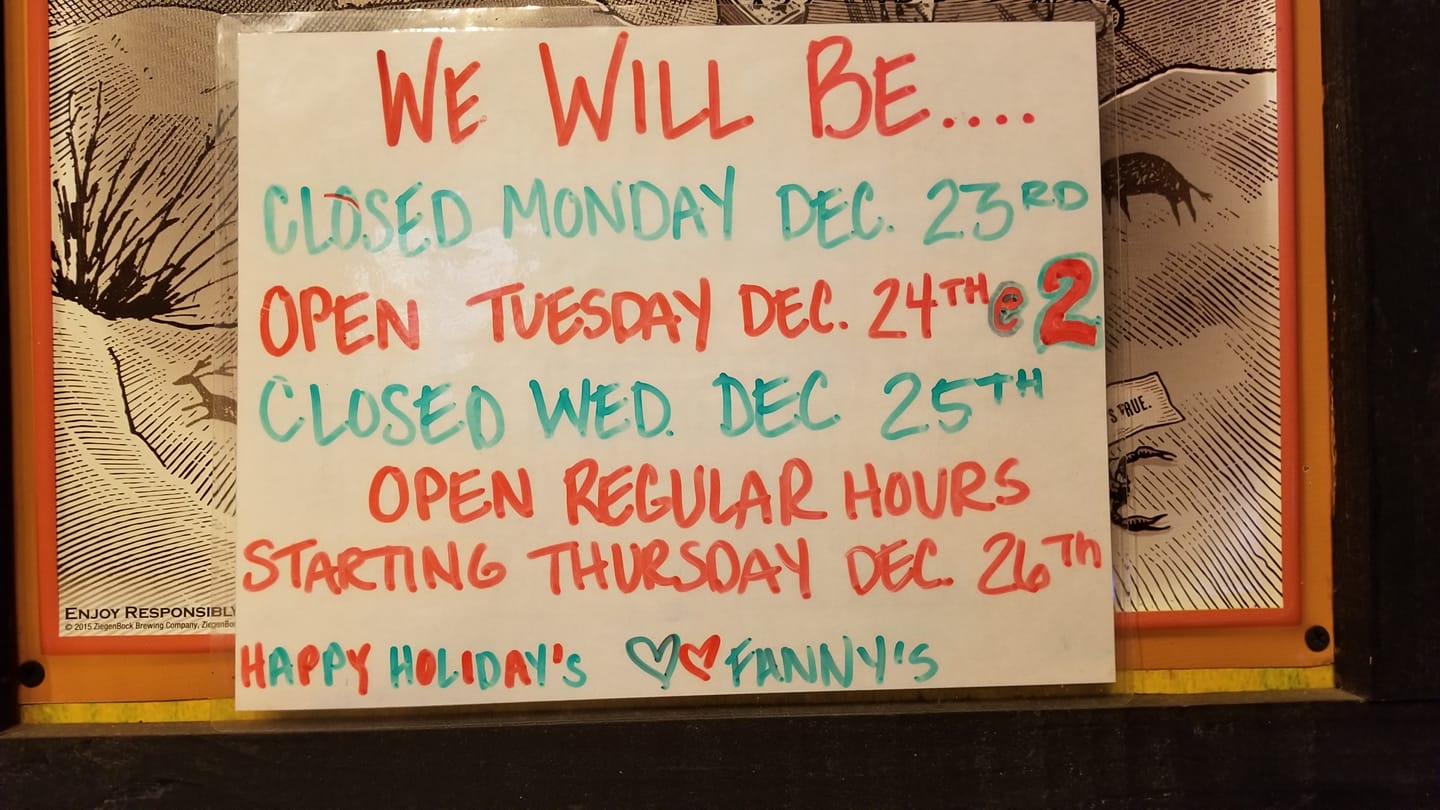 WE WILL BE....
CLOSED MONDAY DEC. 23RD
OPEN TUESDAY DEC. 24TH @ 2
CLOSED WED. DEC. 25TH
OPEN REGULAR HOURS
STARTING THURSDAY DEC. 26Th
HAPPY HOLIDAY'S ♡♡ FANNY'S
S TRUE.
ENJOY RESPONSIBLY
© 2015 ZiegenBock Brewing Company,